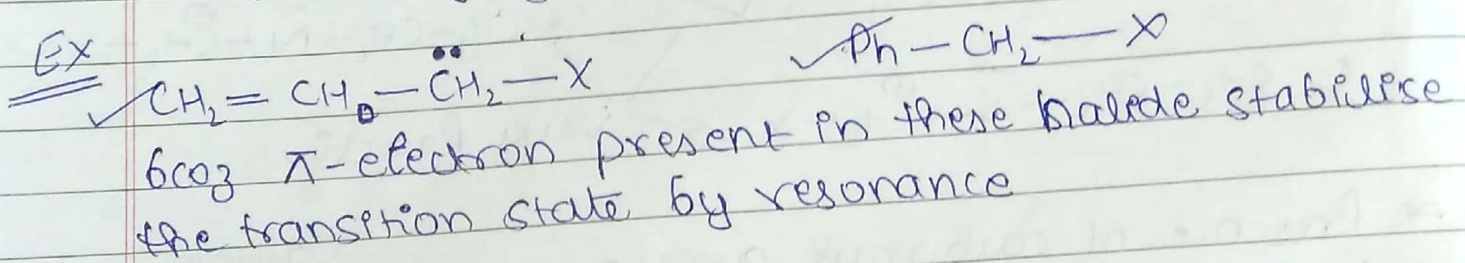 Ex
CH₂ = CH - C̈H₂ - X Ph - CH₂ - X
bcoz π-electron present in these halede stabilise
the transition state by resonance